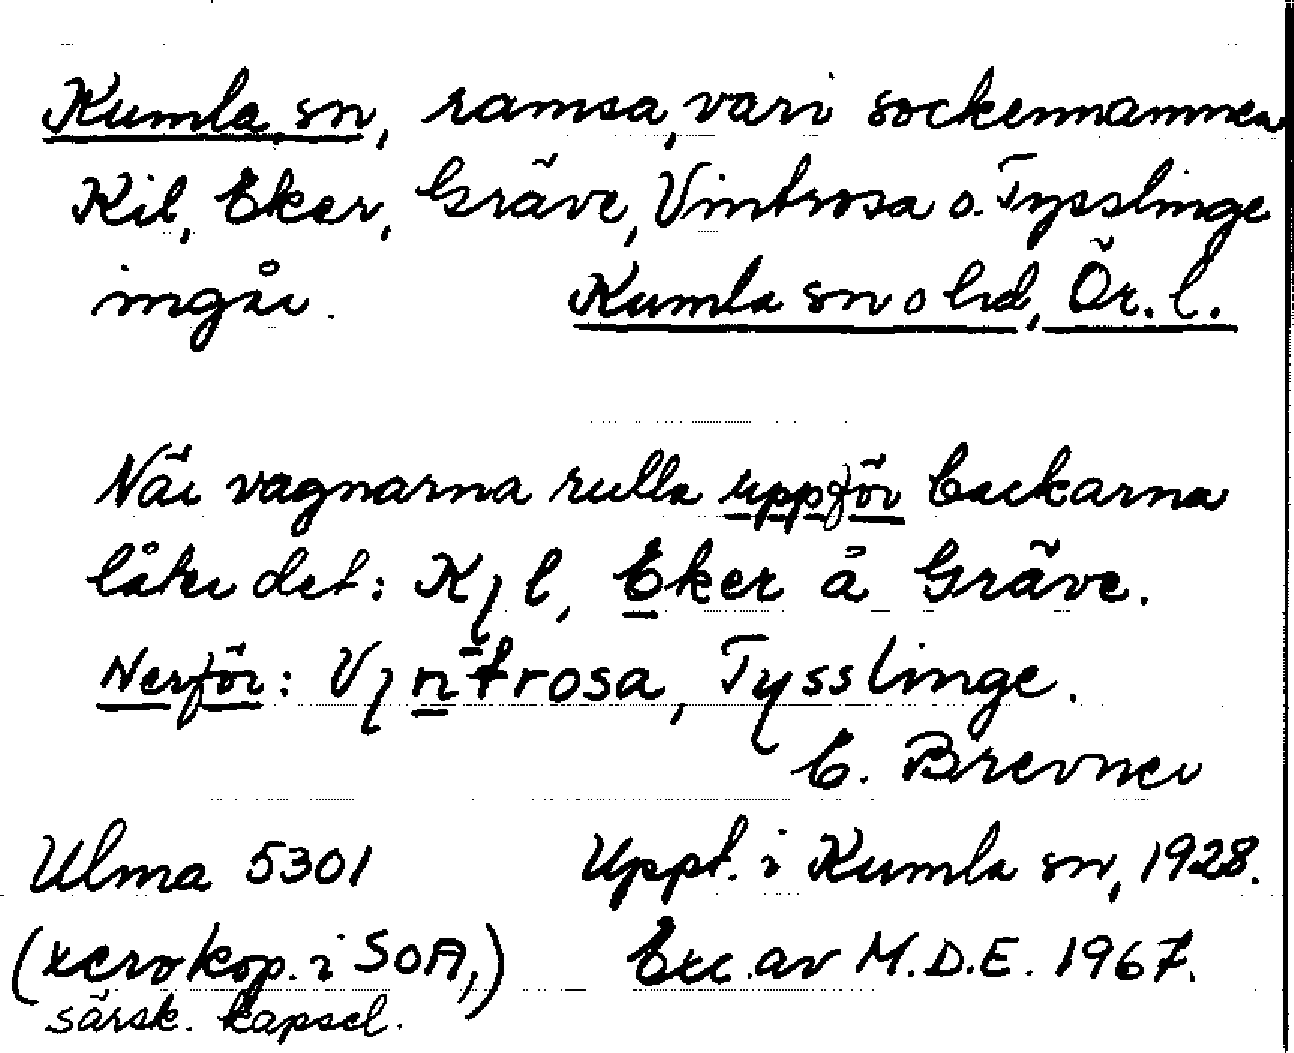 Kumla sn, ramsa, vari sockennamnen
Kil, Eker, Gräve, Vintrosa o. Tysslinge
ingår. Kumla sn o hd, Ör. l.
När vagnarna rulla uppför backarna
låter det: Kıl, Eker å Gräve.
Nerför: Vıntrosa, Tysslinge.
C. Brevner
Ulma 5301 Uppt. i Kumla sn, 1928.
(xerokop. i SOA,) Exc. av M.D.E. 1967.
särsk. kapsel.